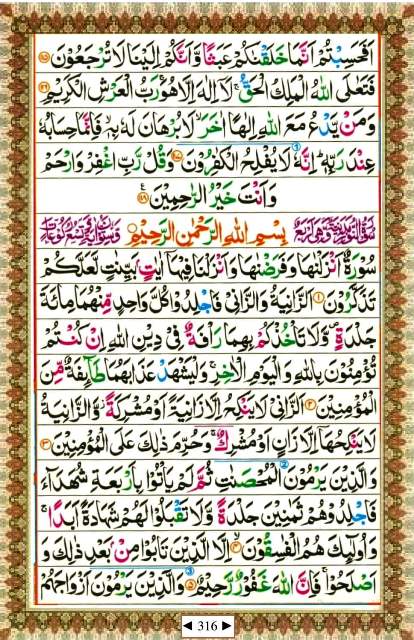 اَفَحَسِبْتُمْ اَنَّمَا خَلَقْنٰكُمْ عَبَثًا وَّاَنَّكُمْ اِلَيْنَا لَا تُرْجَعُوْنَ ۝۱۱۵
فَتَعٰلَى اللّٰهُ الْمَلِكُ الْحَقُّ ۚ لَآ اِلٰهَ اِلَّا هُوَ ۚ رَبُّ الْعَرْشِ الْكَرِيْمِ ۝۱۱۶
وَمَنْ يَّدْعُ مَعَ اللّٰهِ اِلٰهًا اٰخَرَ ۙ لَا بُرْهَانَ لَهٗ بِهٖ ۙ فَاِنَّمَا حِسَابُهٗ
عِنْدَ رَبِّهٖ ؕ اِنَّهٗ لَا يُفْلِحُ الْكٰفِرُوْنَ ۝۱۱۷ وَقُلْ رَّبِّ اغْفِرْ وَارْحَمْ
وَاَنْتَ خَيْرُ الرّٰحِمِيْنَ ۝۱۱۸
بِسْمِ اللّٰهِ الرَّحْمٰنِ الرَّحِيْمِ
سُوْرَةٌ اَنْزَلْنٰهَا وَفَرَضْنٰهَا وَاَنْزَلْنَا فِيْهَآ اٰيٰتٍۭ بَيِّنٰتٍ لَّعَلَّكُمْ
تَذَكَّرُوْنَ ۝۱ اَلزَّانِيَةُ وَالزَّانِيْ فَاجْلِدُوْا كُلَّ وَاحِدٍ مِّنْهُمَا مِائَةَ
جَلْدَةٍ ۪ وَّلَا تَاْخُذْكُمْ بِهِمَا رَاْفَةٌ فِيْ دِيْنِ اللّٰهِ اِنْ كُنْتُمْ
تُؤْمِنُوْنَ بِاللّٰهِ وَالْيَوْمِ الْاٰخِرِ ۚ وَلْيَشْهَدْ عَذَابَهُمَا طَآئِفَةٌ مِّنَ
الْمُؤْمِنِيْنَ ۝۲ اَلزَّانِيْ لَا يَنْكِحُ اِلَّا زَانِيَةً اَوْ مُشْرِكَةً ۫ وَّالزَّانِيَةُ
لَا يَنْكِحُهَآ اِلَّا زَانٍ اَوْ مُشْرِكٌ ۚ وَحُرِّمَ ذٰلِكَ عَلَى الْمُؤْمِنِيْنَ ۝۳
وَالَّذِيْنَ يَرْمُوْنَ الْمُحْصَنٰتِ ثُمَّ لَمْ يَاْتُوْا بِاَرْبَعَةِ شُهَدَآءَ
فَاجْلِدُوْهُمْ ثَمٰنِيْنَ جَلْدَةً وَّلَا تَقْبَلُوْا لَهُمْ شَهَادَةً اَبَدًا ۚ
وَاُولٰٓئِكَ هُمُ الْفٰسِقُوْنَ ۝۴ اِلَّا الَّذِيْنَ تَابُوْا مِنْۢ بَعْدِ ذٰلِكَ وَ
اَصْلَحُوْا ۚ فَاِنَّ اللّٰهَ غَفُوْرٌ رَّحِيْمٌ ۝۵ وَالَّذِيْنَ يَرْمُوْنَ اَزْوَاجَهُمْ
◄ 316 ►